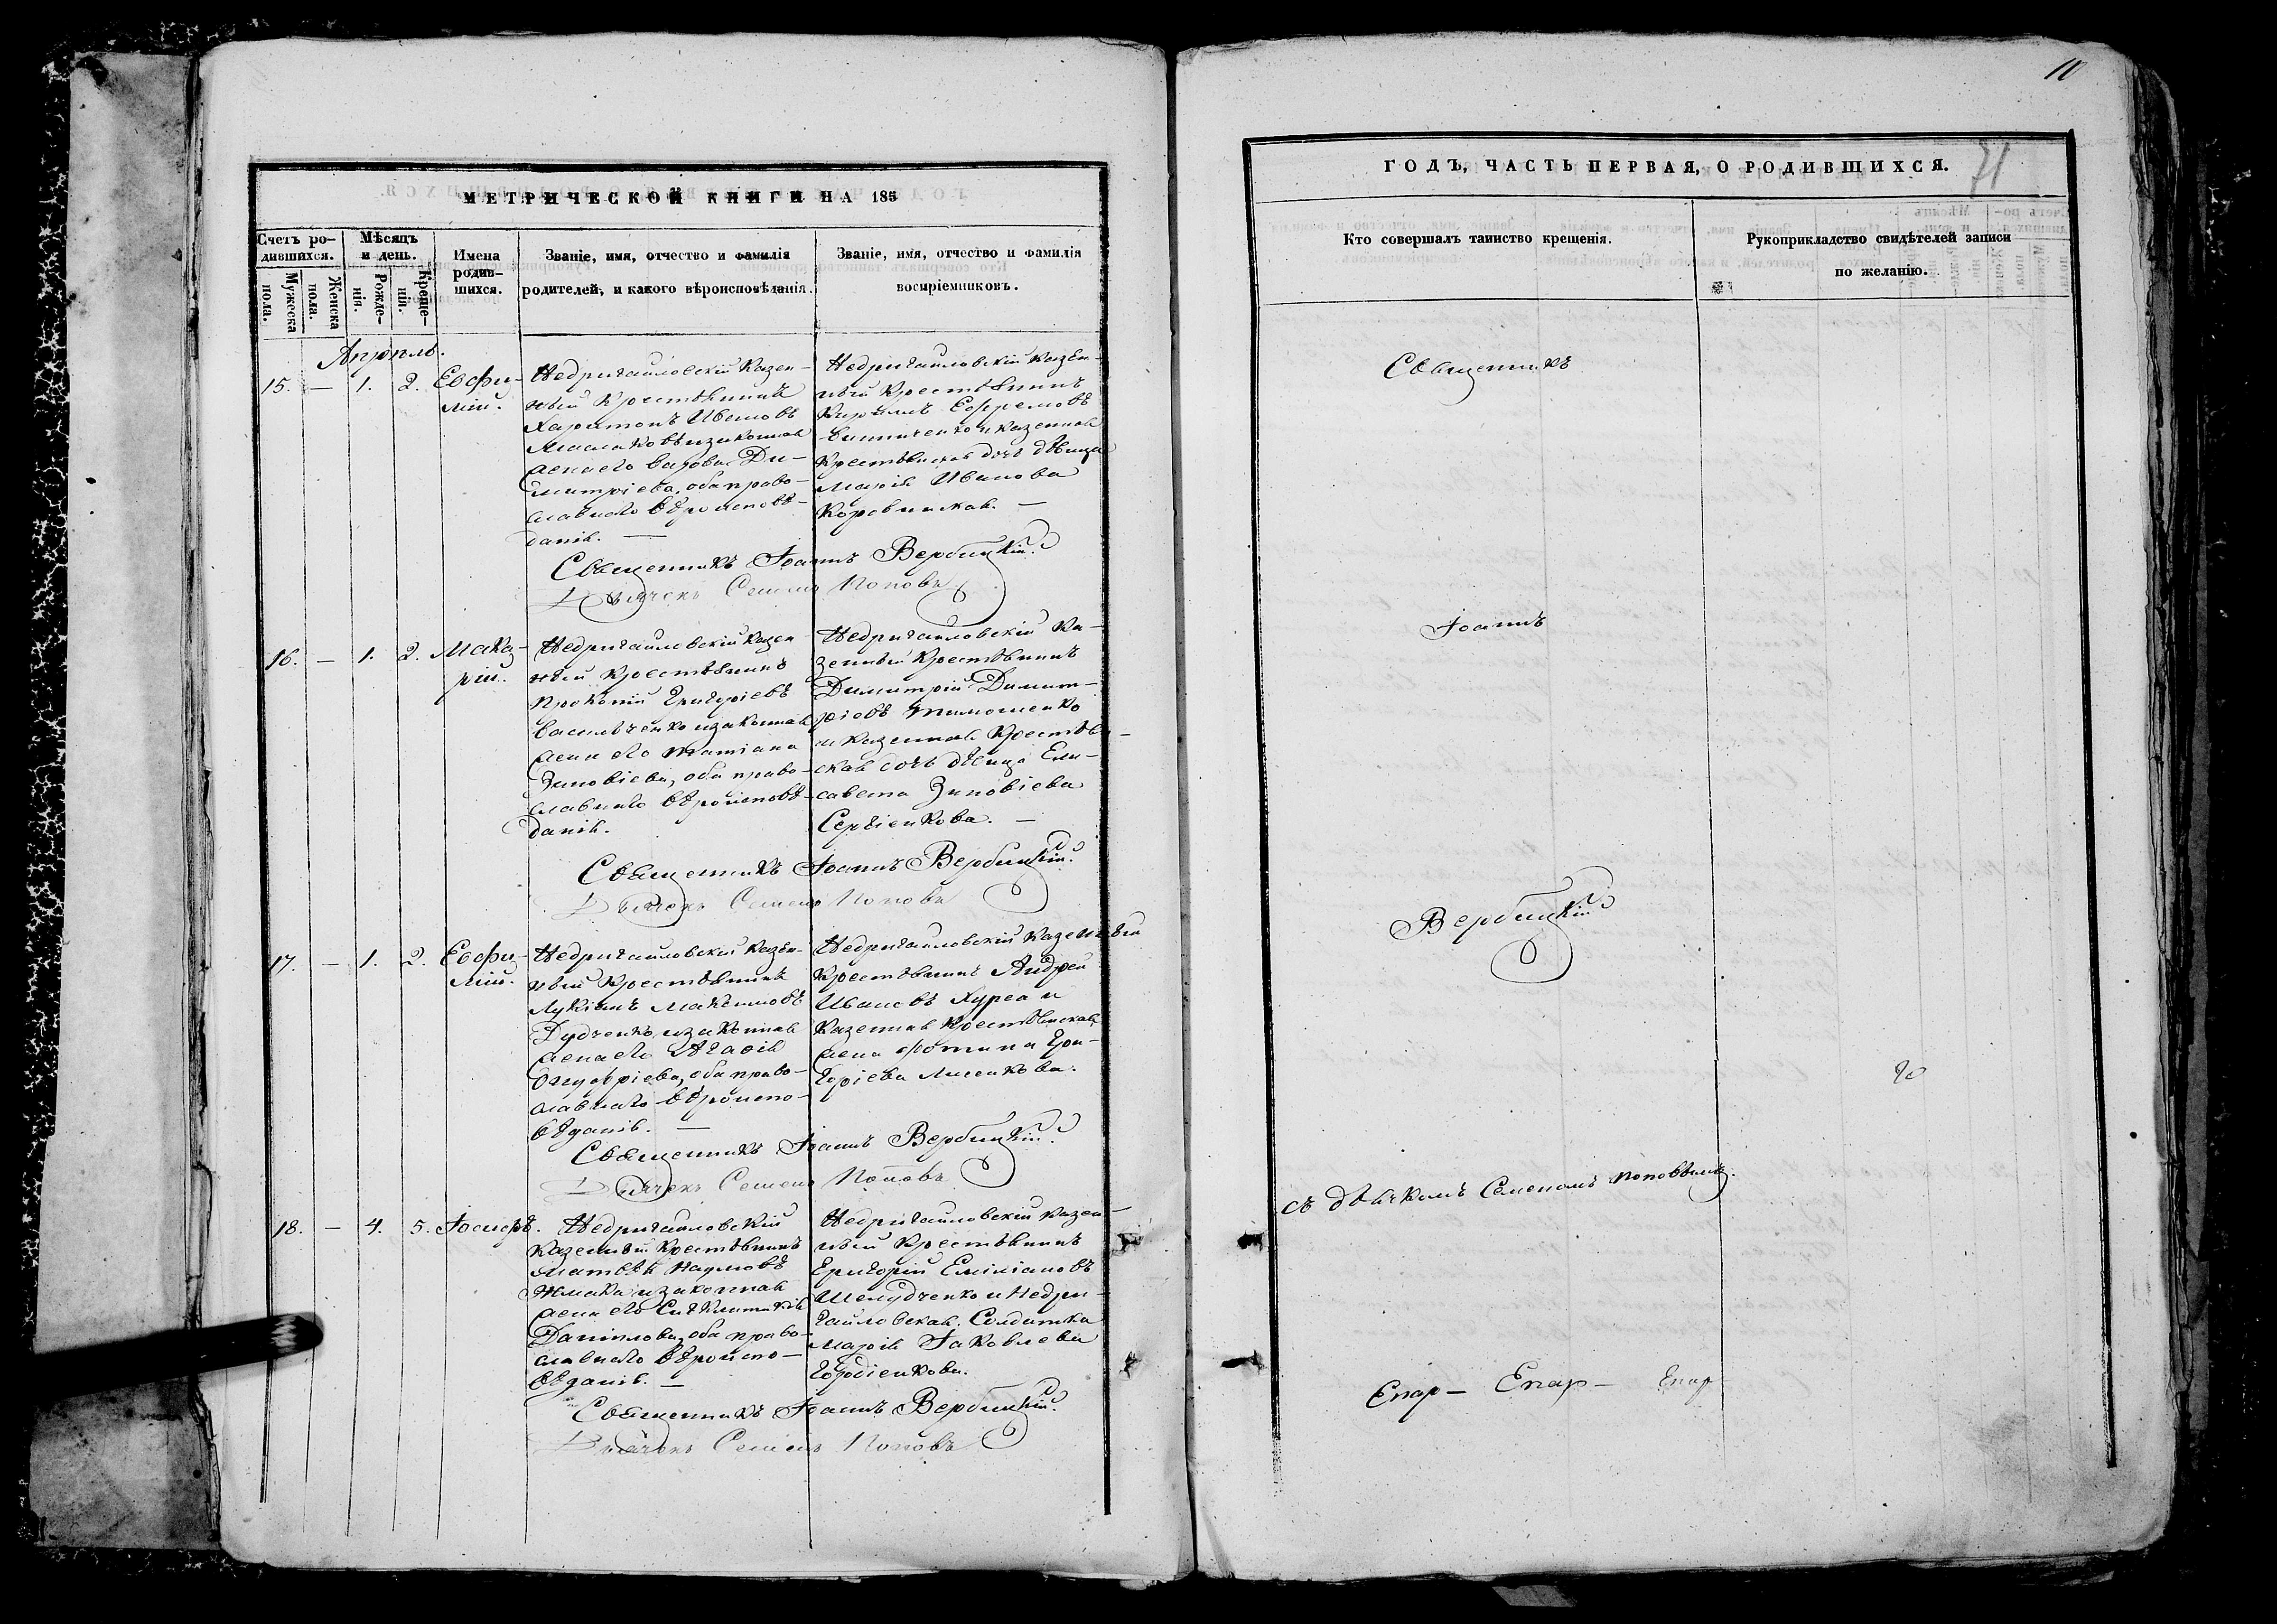 МЕТРИЧЕСКОЙ КНИГИ НА 185
Счетъ ро-
дившихся.
Мужеска
пола.
Женска
пола.
Мѣсяцъ
и день.
Рожде-
нія.
Креще-
нія.
Имена
родив-
шихся.
Званіе, имя, отчество и фамилія
родителей, и какого вѣроисповѣданія.
Званіе, имя, отчество и фамилія
воспріемниковъ.
Апрѣль.
15. — 1. 2. Евфи-
мій.
Недригайловскій Казен-
ный Крестьянинъ
Харитонъ Ивановъ
и законная
жена его Ди-
митріева, оба право-
славнаго вѣроисповѣ-
данія. —
Недригайловскій Казен-
ный Крестьянинъ
Кирилъ Ефремовъ
и казенная
Крестьянская дочь дѣвица
Марія Иванова
Священникъ Іоаннъ Вербицкій.
Дьячекъ Семенъ Поповъ
16. — 1. 2. Мака-
рій.
Недригайловскій Казен-
ный Крестьянинъ
Прокопій Григорьевъ
Васильченко и законная
жена его Татіана
Зиновіева, оба право-
славнаго вѣроисповѣ-
данія.
Недригайловскій Ка-
зенный Крестьянинъ
Димитрій Димит-
ріевъ Тимошенко
и казенная Крестьян-
ская дочь дѣвица Ели-
савета Зиновіева
Сергіенкова. —
Священникъ Іоаннъ Вербицкій.
Дьячекъ Семенъ Поповъ
17. — 1. 2. Евфи-
мій.
Недригайловскій Казен-
ный Крестьянинъ
Лукіанъ Максимовъ
Дудченко и законная
жена его Агафія
Онуфріева, оба право-
славнаго вѣроиспо-
вѣданія. —
Недригайловскій Казенный
Крестьянинъ Андрей
Ивановъ Курса и
Казенная Крестьянская
жена Фотина Гри-
горіева Лисенкова.
Священникъ Іоаннъ Вербицкій.
Дьячекъ Семенъ Поповъ
18. — 4. 5. Іосифъ.
Недригайловскій
Казенный Крестьянинъ
Матвѣй Наумовъ
Жмака и законная
жена его Синклитикія
Даніилова, оба право-
славнаго вѣроиспо-
вѣданія. —
Недригайловскій Казен-
ный Крестьянинъ
Григорій Емиліановъ
Шелудченко и Недри-
гайловская Солдатка
Марія Іаковлева
Гордіенкова.
Священникъ Іоаннъ Вербицкій.
Дьячекъ Семенъ Поповъ
10
71
ГОДЪ, ЧАСТЬ ПЕРВАЯ, О РОДИВШИХСЯ.
Кто совершалъ таинство крещенія.
Рукоприкладство свидѣтелей записи
по желанію.
Священникъ
Іоаннъ
Вербицкій
съ дьячкомъ Семеномъ Поповымъ.
Епар— Епар— Епар